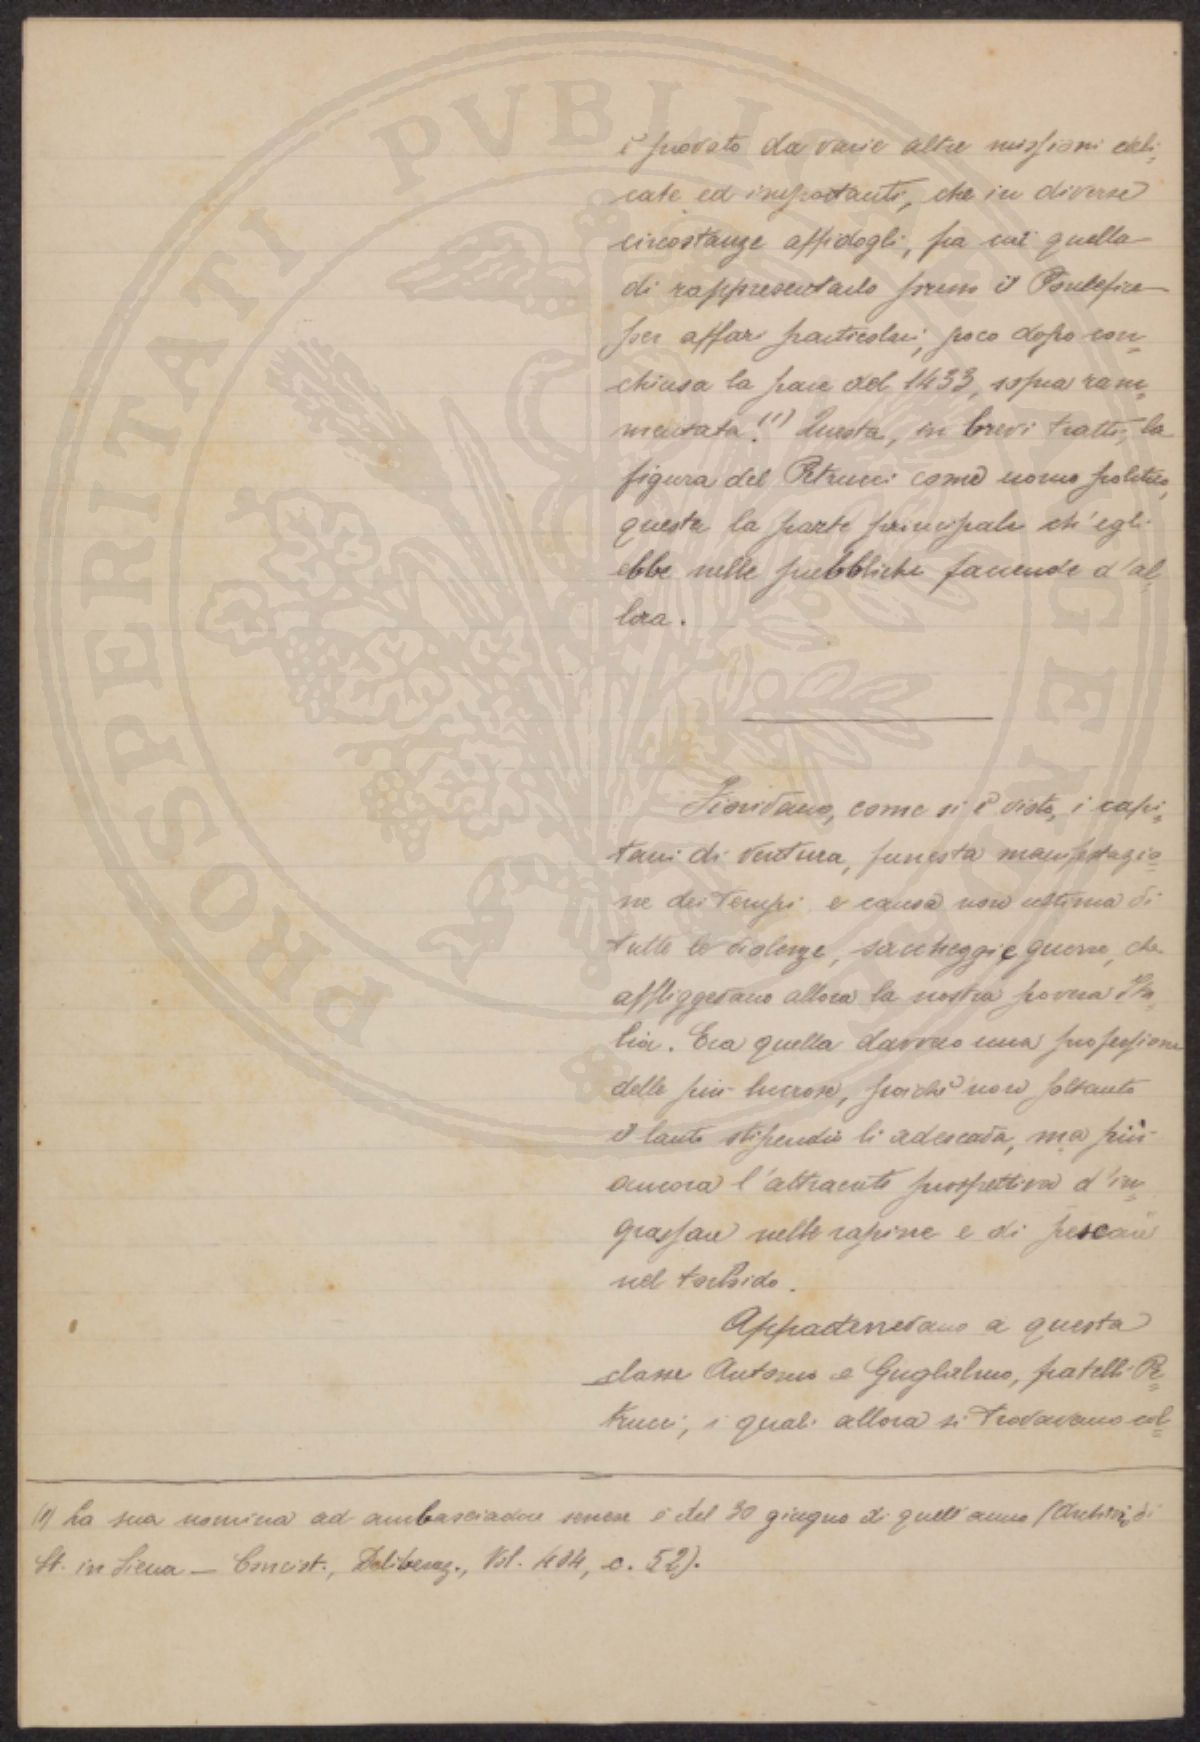 è provato da varie altre missioni deli-
cate ed importanti, che in diverse
circostanze affidogli, fra cui quella
di rappresentarlo presso il Pontefice
per affari particolari, poco dopo con-
chiusa la pace del 1433, sopra ram-
mentata.(1) Questa, in brevi tratti, la
figura del Petrucci come uomo politico,
questa la parte principale ch'egli
ebbe nelle pubbliche faccende d'al-
lora.
Fiorivano, come si è visto, i capi-
tani di ventura, funesta manifestazio-
ne dei tempi e causa non ultima di
tutte le violenze, saccheggi e guerre, che
affliggevano allora la nostra povera Ita-
lia. Era quella davvero una professione
delle più lucrose, poichè non soltanto
il lauto stipendio li adescava, ma più
ancora l'attraente prospettiva d'in-
grassare nelle rapine e di pescare
nel torbido.
Appartenevano a questa
classe Antonio e Guglielmo, fratelli Pe-
trucci, i quali allora si trovavano col-
(1) La sua nomina ad ambasciadore senese è del 30 giugno di quell'anno (Archivio di
St. in Siena — Concist., Deliberaz., Vol. 404, c. 52).
PROSPERITATI PVBLICAE AVGENDAE